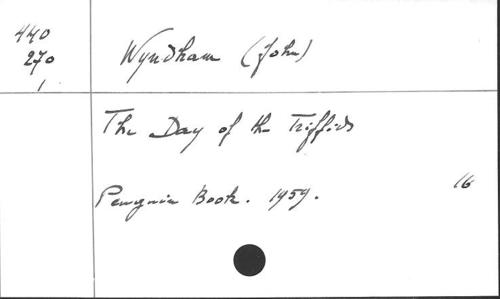 440
270
1
Wyndham (John)
The Day of the Triffids
Penguin Book. 1959.
16